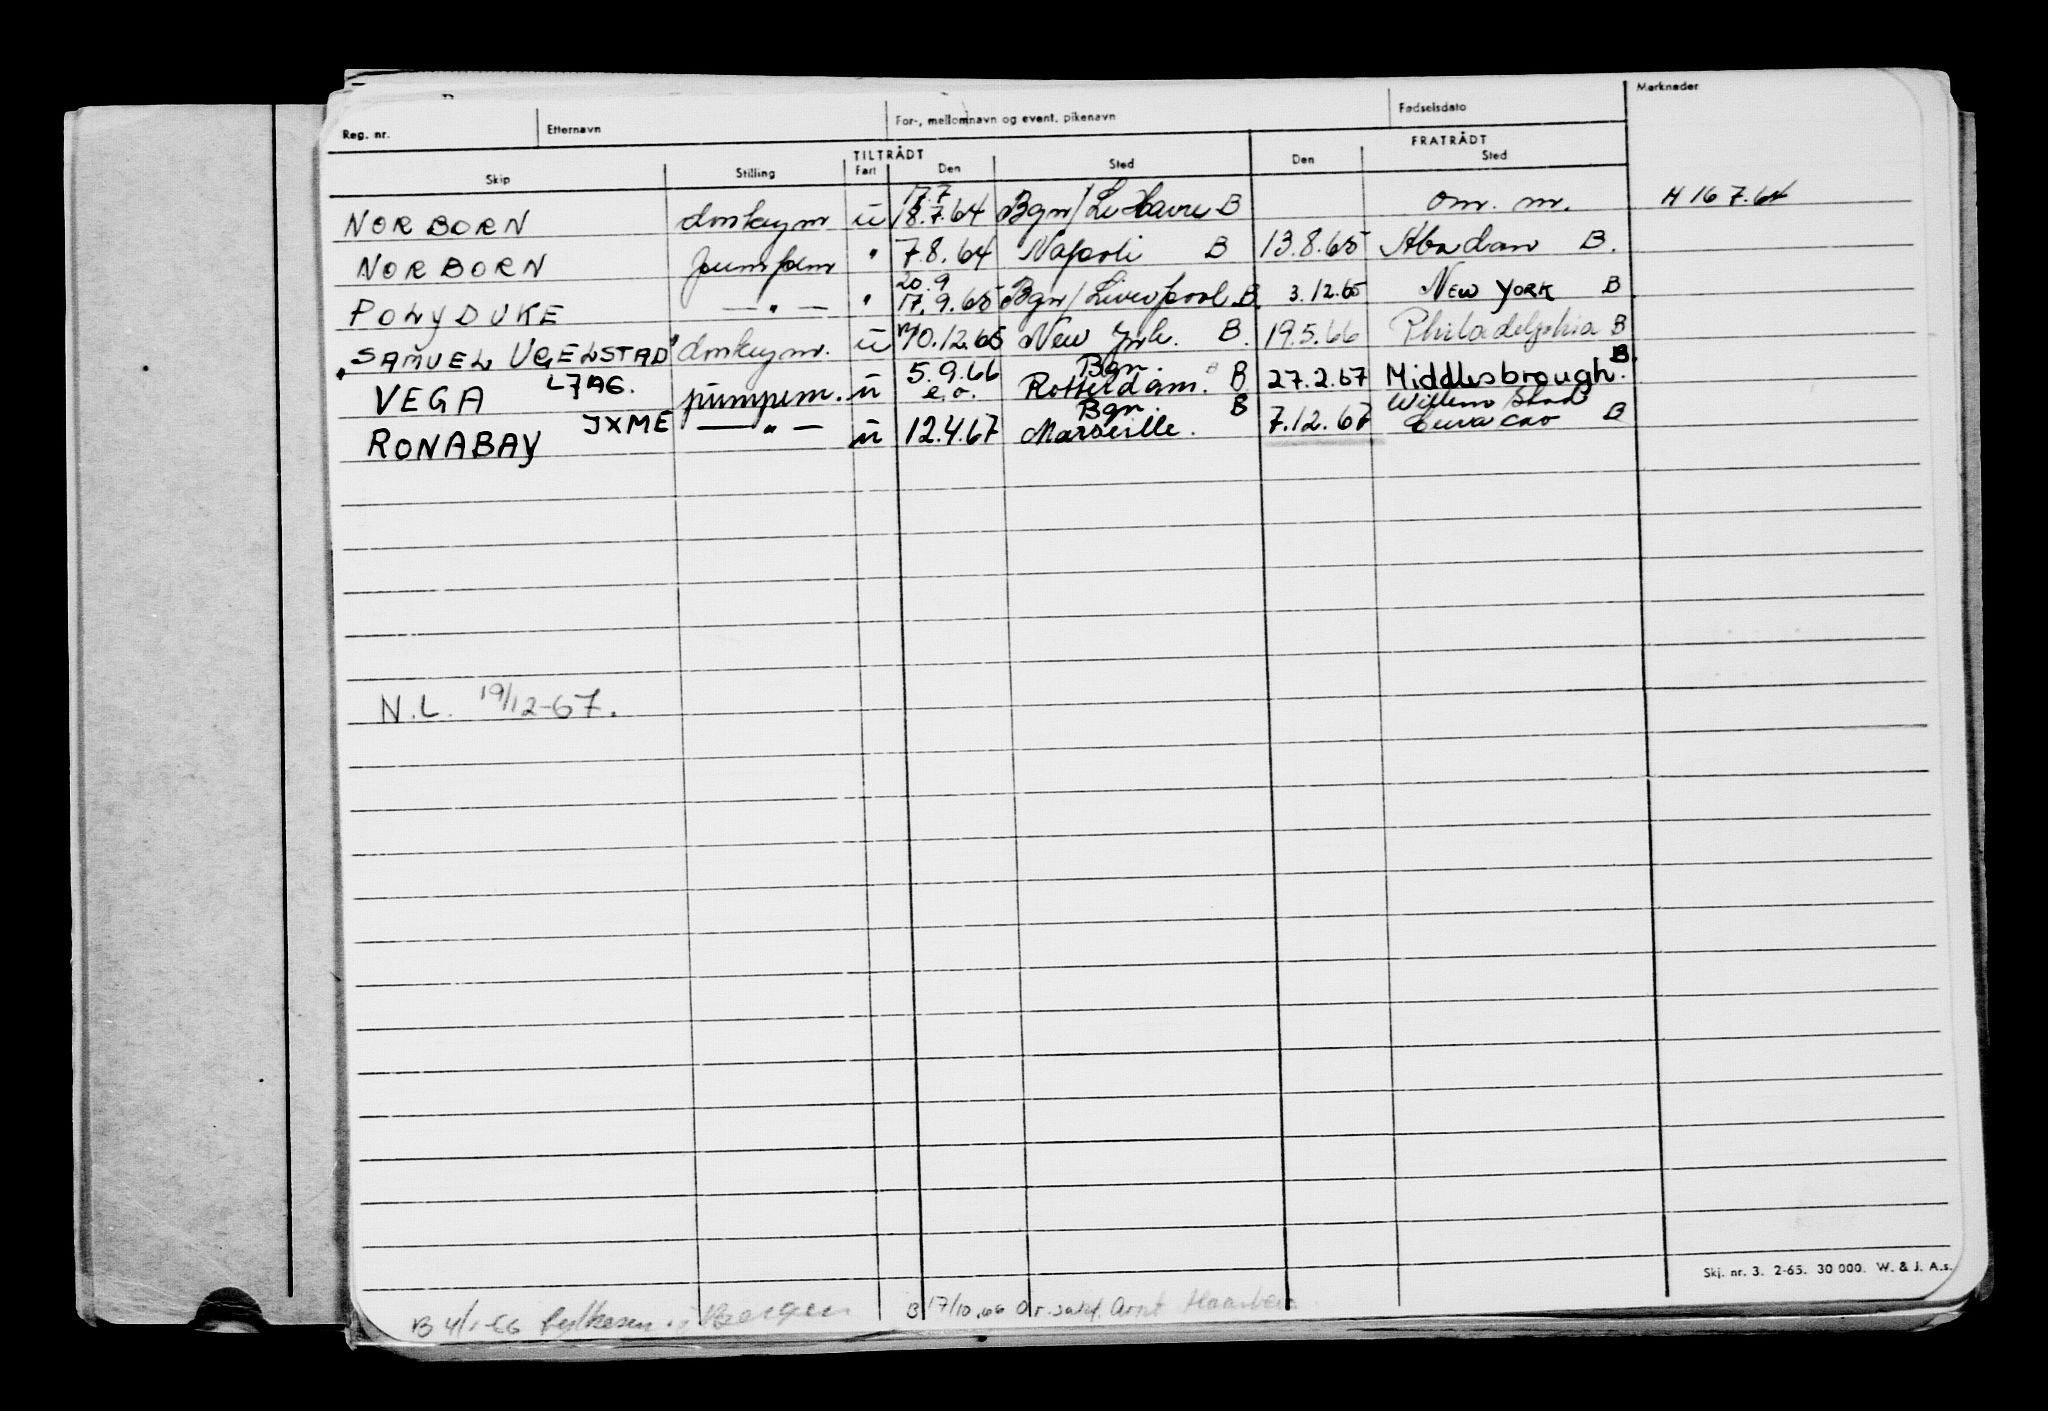 Reg. nr. Etternavn For-, mellomnavn og event. pikenavn Fødselsdato Merknader
TILTRÅDT FRATRÅDT
Skip Stilling Fart Den Sted Den Sted
17.7
NORBORN donkeym ū 18.7.64 Bgn/Le Havre B om. m. H 16 7.64
NORBORN pumpem " 7.8.64 Napoli B 13.8.65 Abadan B.
20.9
POLYDUKE — " — " 17.9.65 Bgn/Liverpool B. 3.12.65 NEW YORK B
"SAMUEL UGELSTAD" donkeym. ū 10.12.65 New York. B. 19.5.66 Philadelphia B
Bgn. B.
VEGA L7AG. pumpem. ū 5.9.66 e.o. Rotterdam. B 27.2.67 Middlesbrough.
Bgn B Willemstad
RONABAY JXME — " — ū 12.4.67 Marseille. 7.12.67 Curacao B
N.L. 19/12-67.
Skj. nr. 3. 2-65. 30 000. W. & J. A.s.
B 4/1-66 Bergen B 17/10.66 Arnt